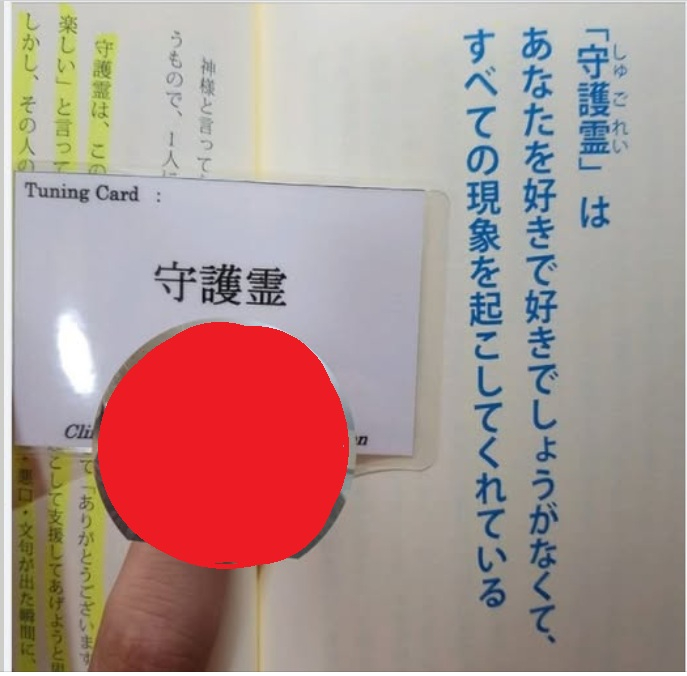 しゅ ご れい
「守護霊」は
あなたを好きで好きでしょうがなくて、
すべての現象を起こしてくれている
神様と言って
うもので、1人に
守護霊は、この
て「ありがとうございます
楽しい」と言って
として支援してあげようと思
しかし、その人の
・悪口・文句が出た瞬間に、
Tuning Card :
守護霊